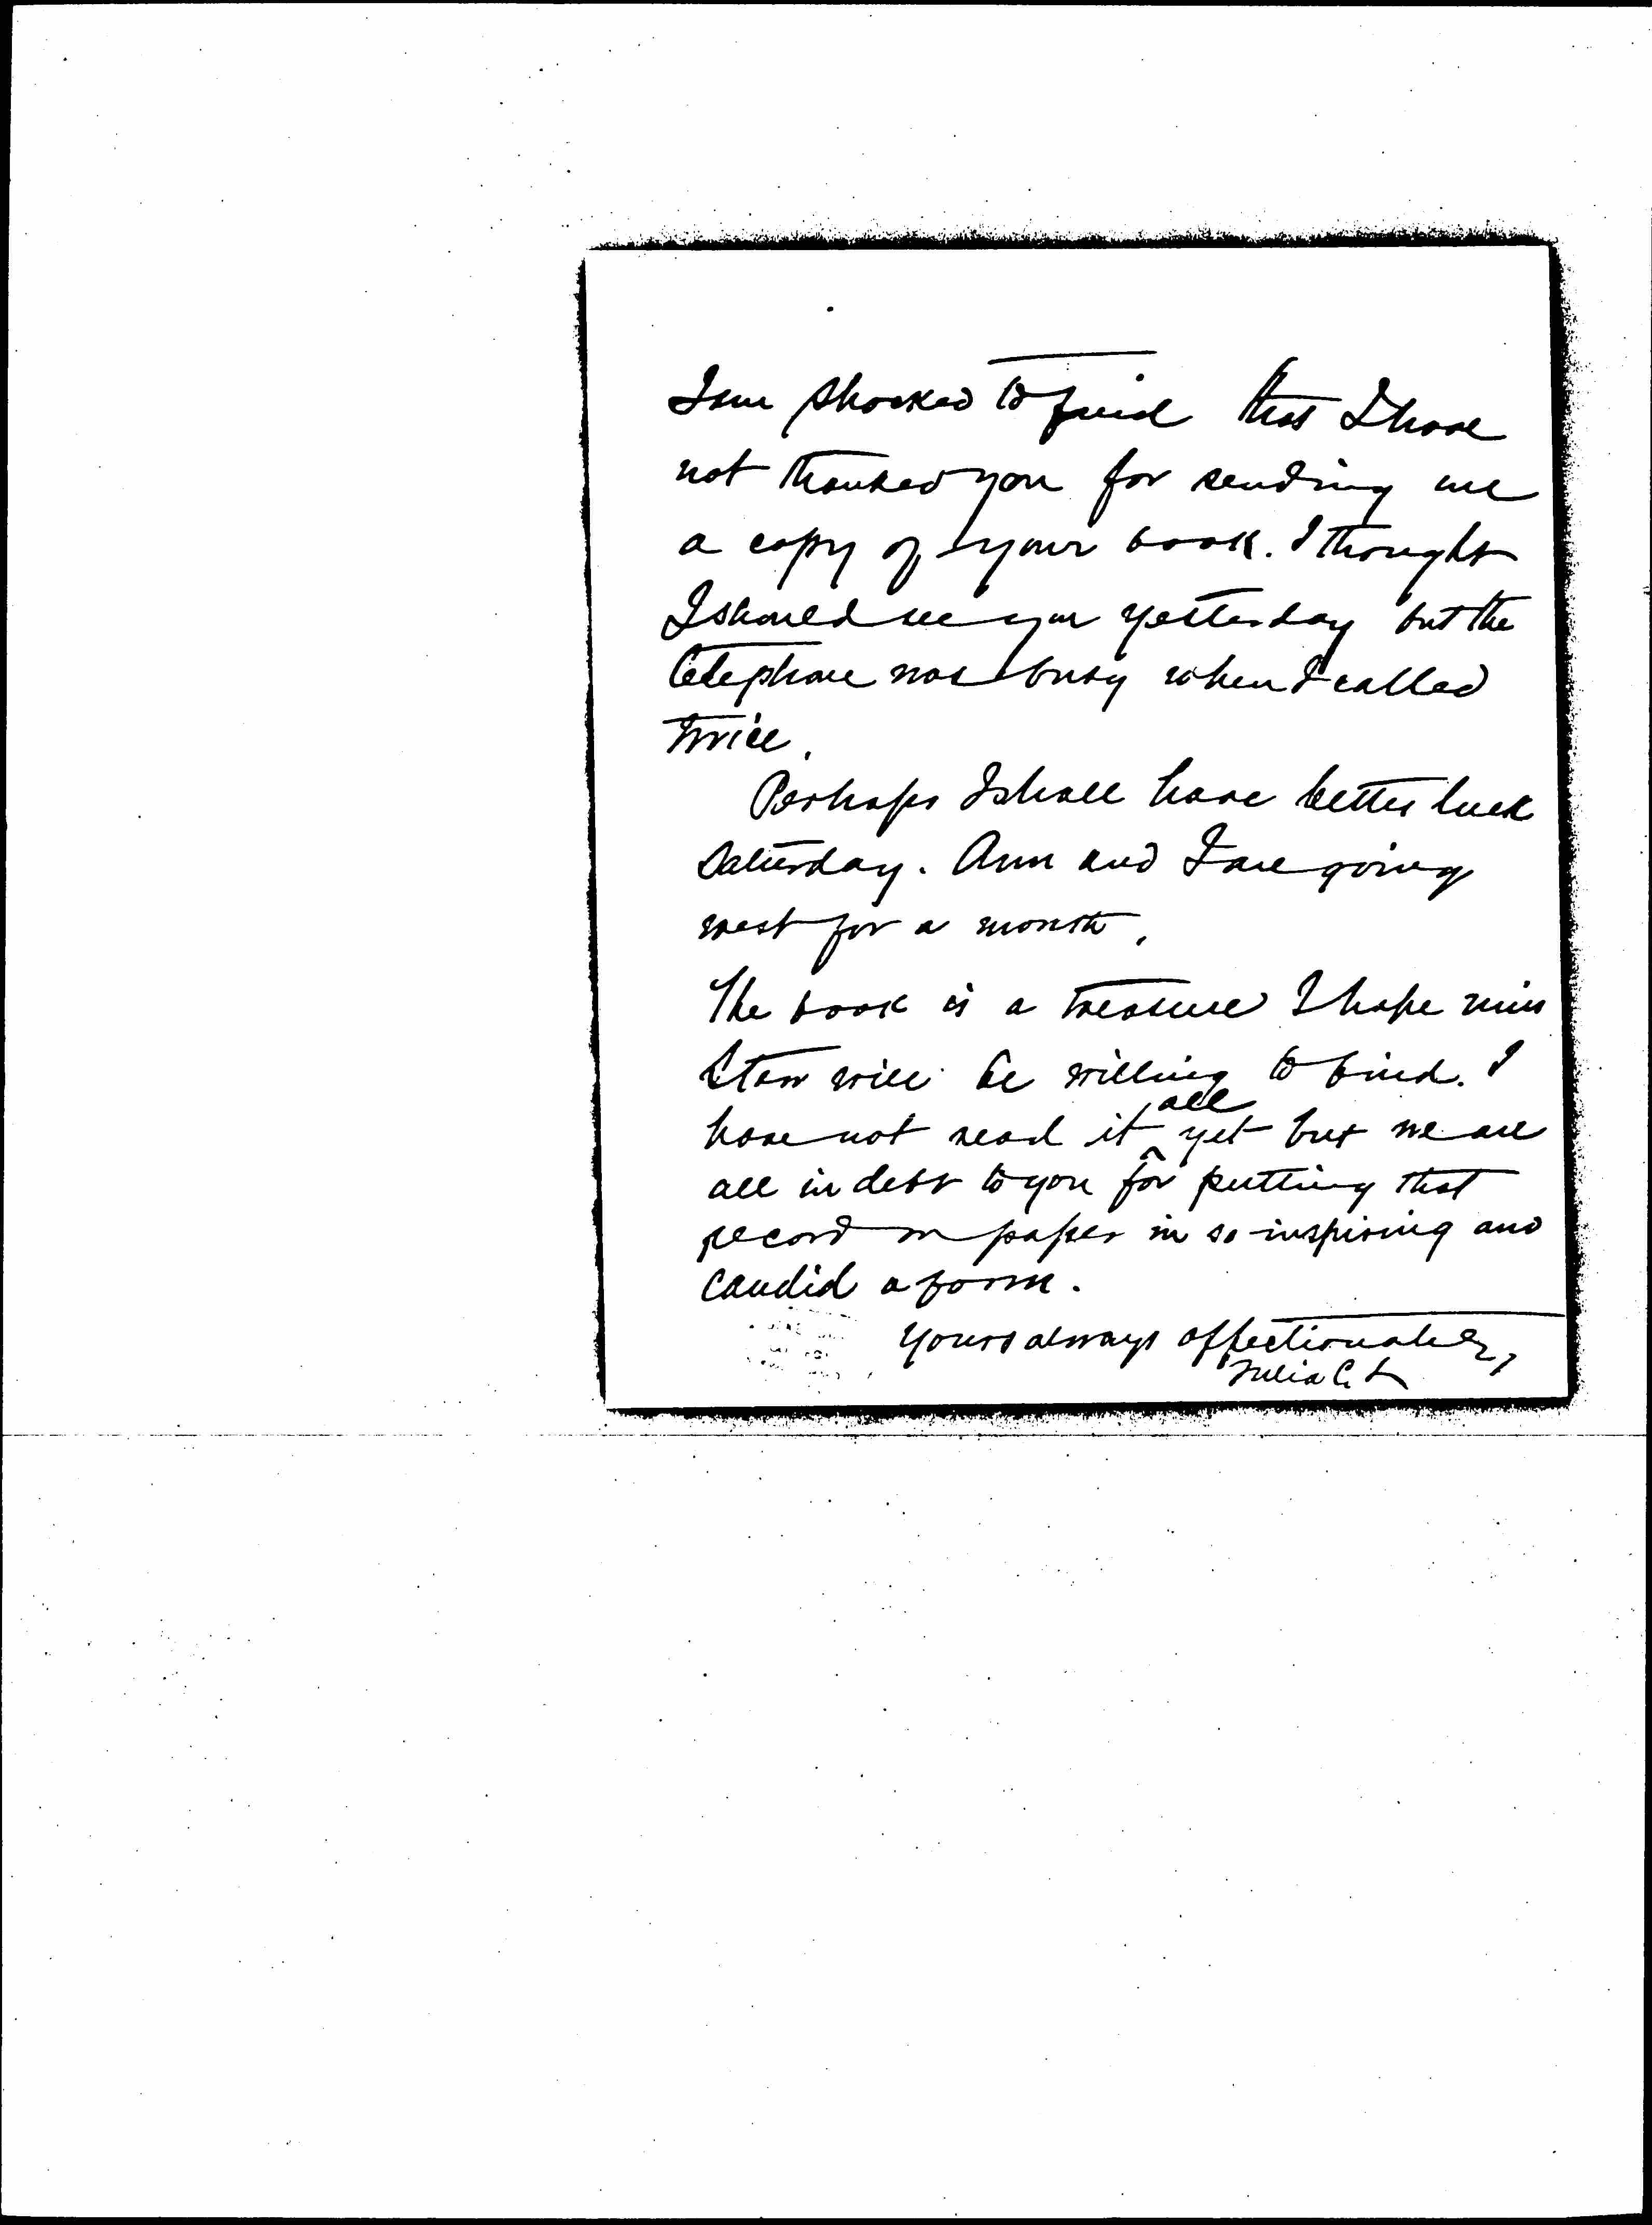 I am shocked to find that I have
not thanked you for sending me
a copy of your book. I thought
I should see you yesterday but the
telephone was busy when I called
twice.
Perhaps I shall have better luck
Saturday. Ann and I are going
west for a month.
The book is a treasure I hope miss
will be willing to bind. I
have not read it all yet but we are
all in debt to you for putting that
record on paper in so inspiring and
candid a form.
Yours always affectionately,
Julia C.